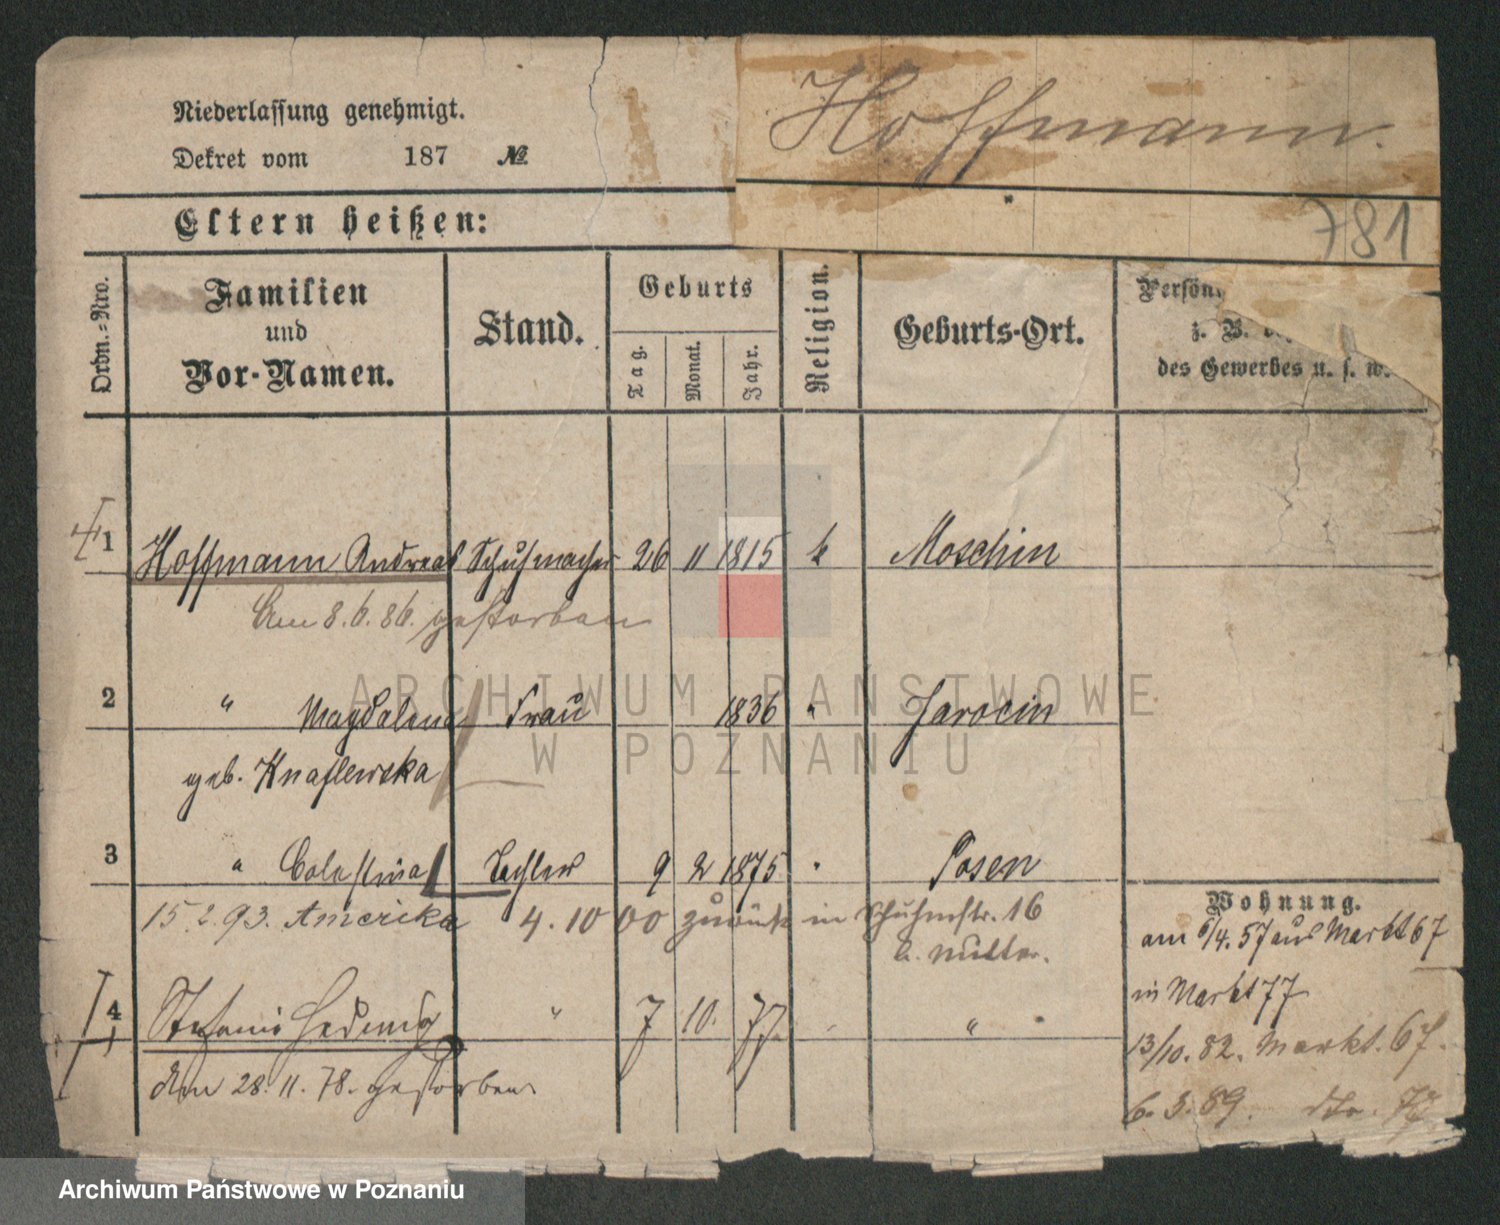 Niederlassung genehmigt.
Dekret vom 187 No
Hoffmann.
781
Eltern heißen:
Ordn.-Nro.
Familien
und
Vor-Namen.
Stand.
Geburts
Tag.
Monat.
Jahr.
Religion.
Geburts-Ort.
Persön
z. B. de
des Gewerbes u. s. w.
1 Hoffmann Andreas Schuhmacher 26 11 1815 k Moschin
Am 8.6.86. gestorben
2 " Magdalena Frau 1836 " Jarocin
geb. Knaflewska
3 " Colestina Tochter 9 2 1875 " Posen
15.2.93. Amerika 4.10 00 zurück in Schuhmstr. 16
b. Mutter.
4 Stefanie Hedwig " 7 10. 77. "
Am 28.11.78. gestorben.
Wohnung.
am 6/4. 57 aus Markt 67
in Markt 77
13/10. 82. Markt. 67.
6.3.89. dto. 77.
ARCHIWUM PAŃSTWOWE
W POZNANIU
Archiwum Państwowe w Poznaniu